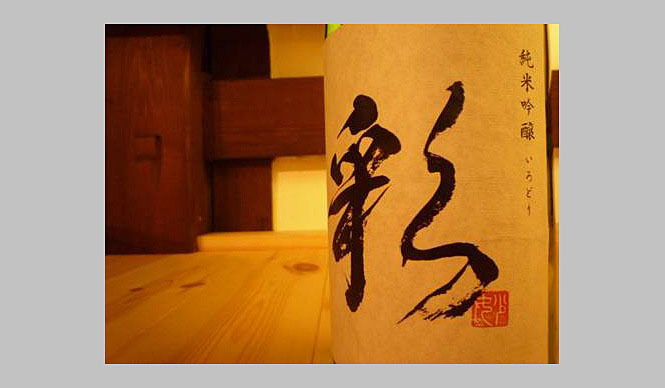 純米吟醸 いろどり
彩